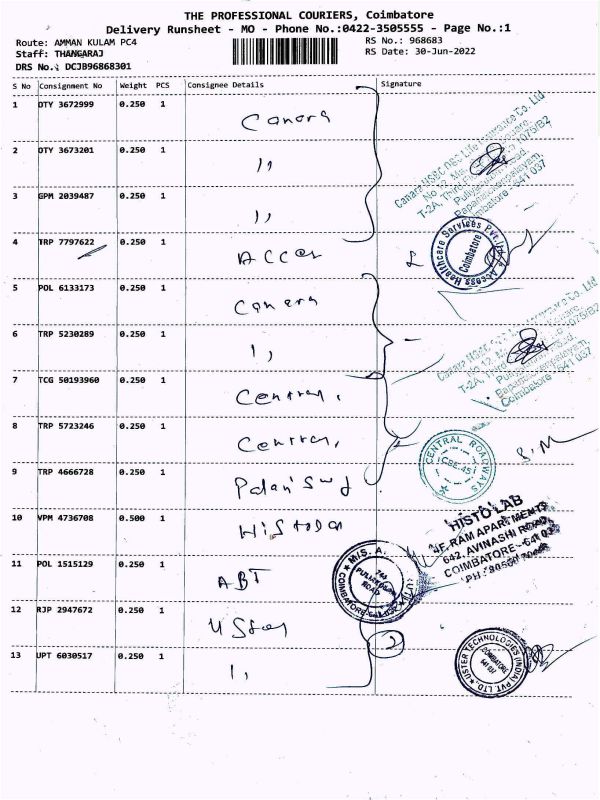 THE PROFESSIONAL COURIERS, Coimbatore
Delivery Runsheet - MO - Phone No.:0422-3505555 - Page No.:1
Route: AMMAN KULAM PC4 RS No.: 968683
Staff: THANGARAJ RS Date: 30-Jun-2022
DRS No.: DCJB96868301
S No Consignment No Weight PCS Consignee Details Signature
1 DTY 3672999 0.250 1 Canara
2 DTY 3673201 0.250 1 ,,
3 GPM 2039487 0.250 1 ,,
4 TRP 7797622 0.250 1
5 POL 6133173 0.250 1 Canara
6 TRP 5230289 0.250 1 ,,
7 TCG 50193960 0.250 1 Central,
8 TRP 5723246 0.250 1 Central,
9 TRP 4666728 0.250 1
10 VPM 4736708 0.500 1
11 POL 1515129 0.250 1 ABT
12 RJP 2947672 0.250 1
13 UPT 6030517 0.250 1 ,,
Canara HSBC OBC Life Insurance Co. Ltd
Coimbatore - 641 037
Access Healthcare Services Pvt. Ltd
Coimbatore
Coimbatore - 641 037
CENTRAL ROADWAYS
CBE-45
S. M
HISTO LAB
4F, RAM APARTMENTS
642, AVINASHI ROAD
COIMBATORE - 641 037
M/S. A.
ROAD
2
USTER TECHNOLOGIES (INDIA) PVT. LTD.
COIMBATORE
641 037